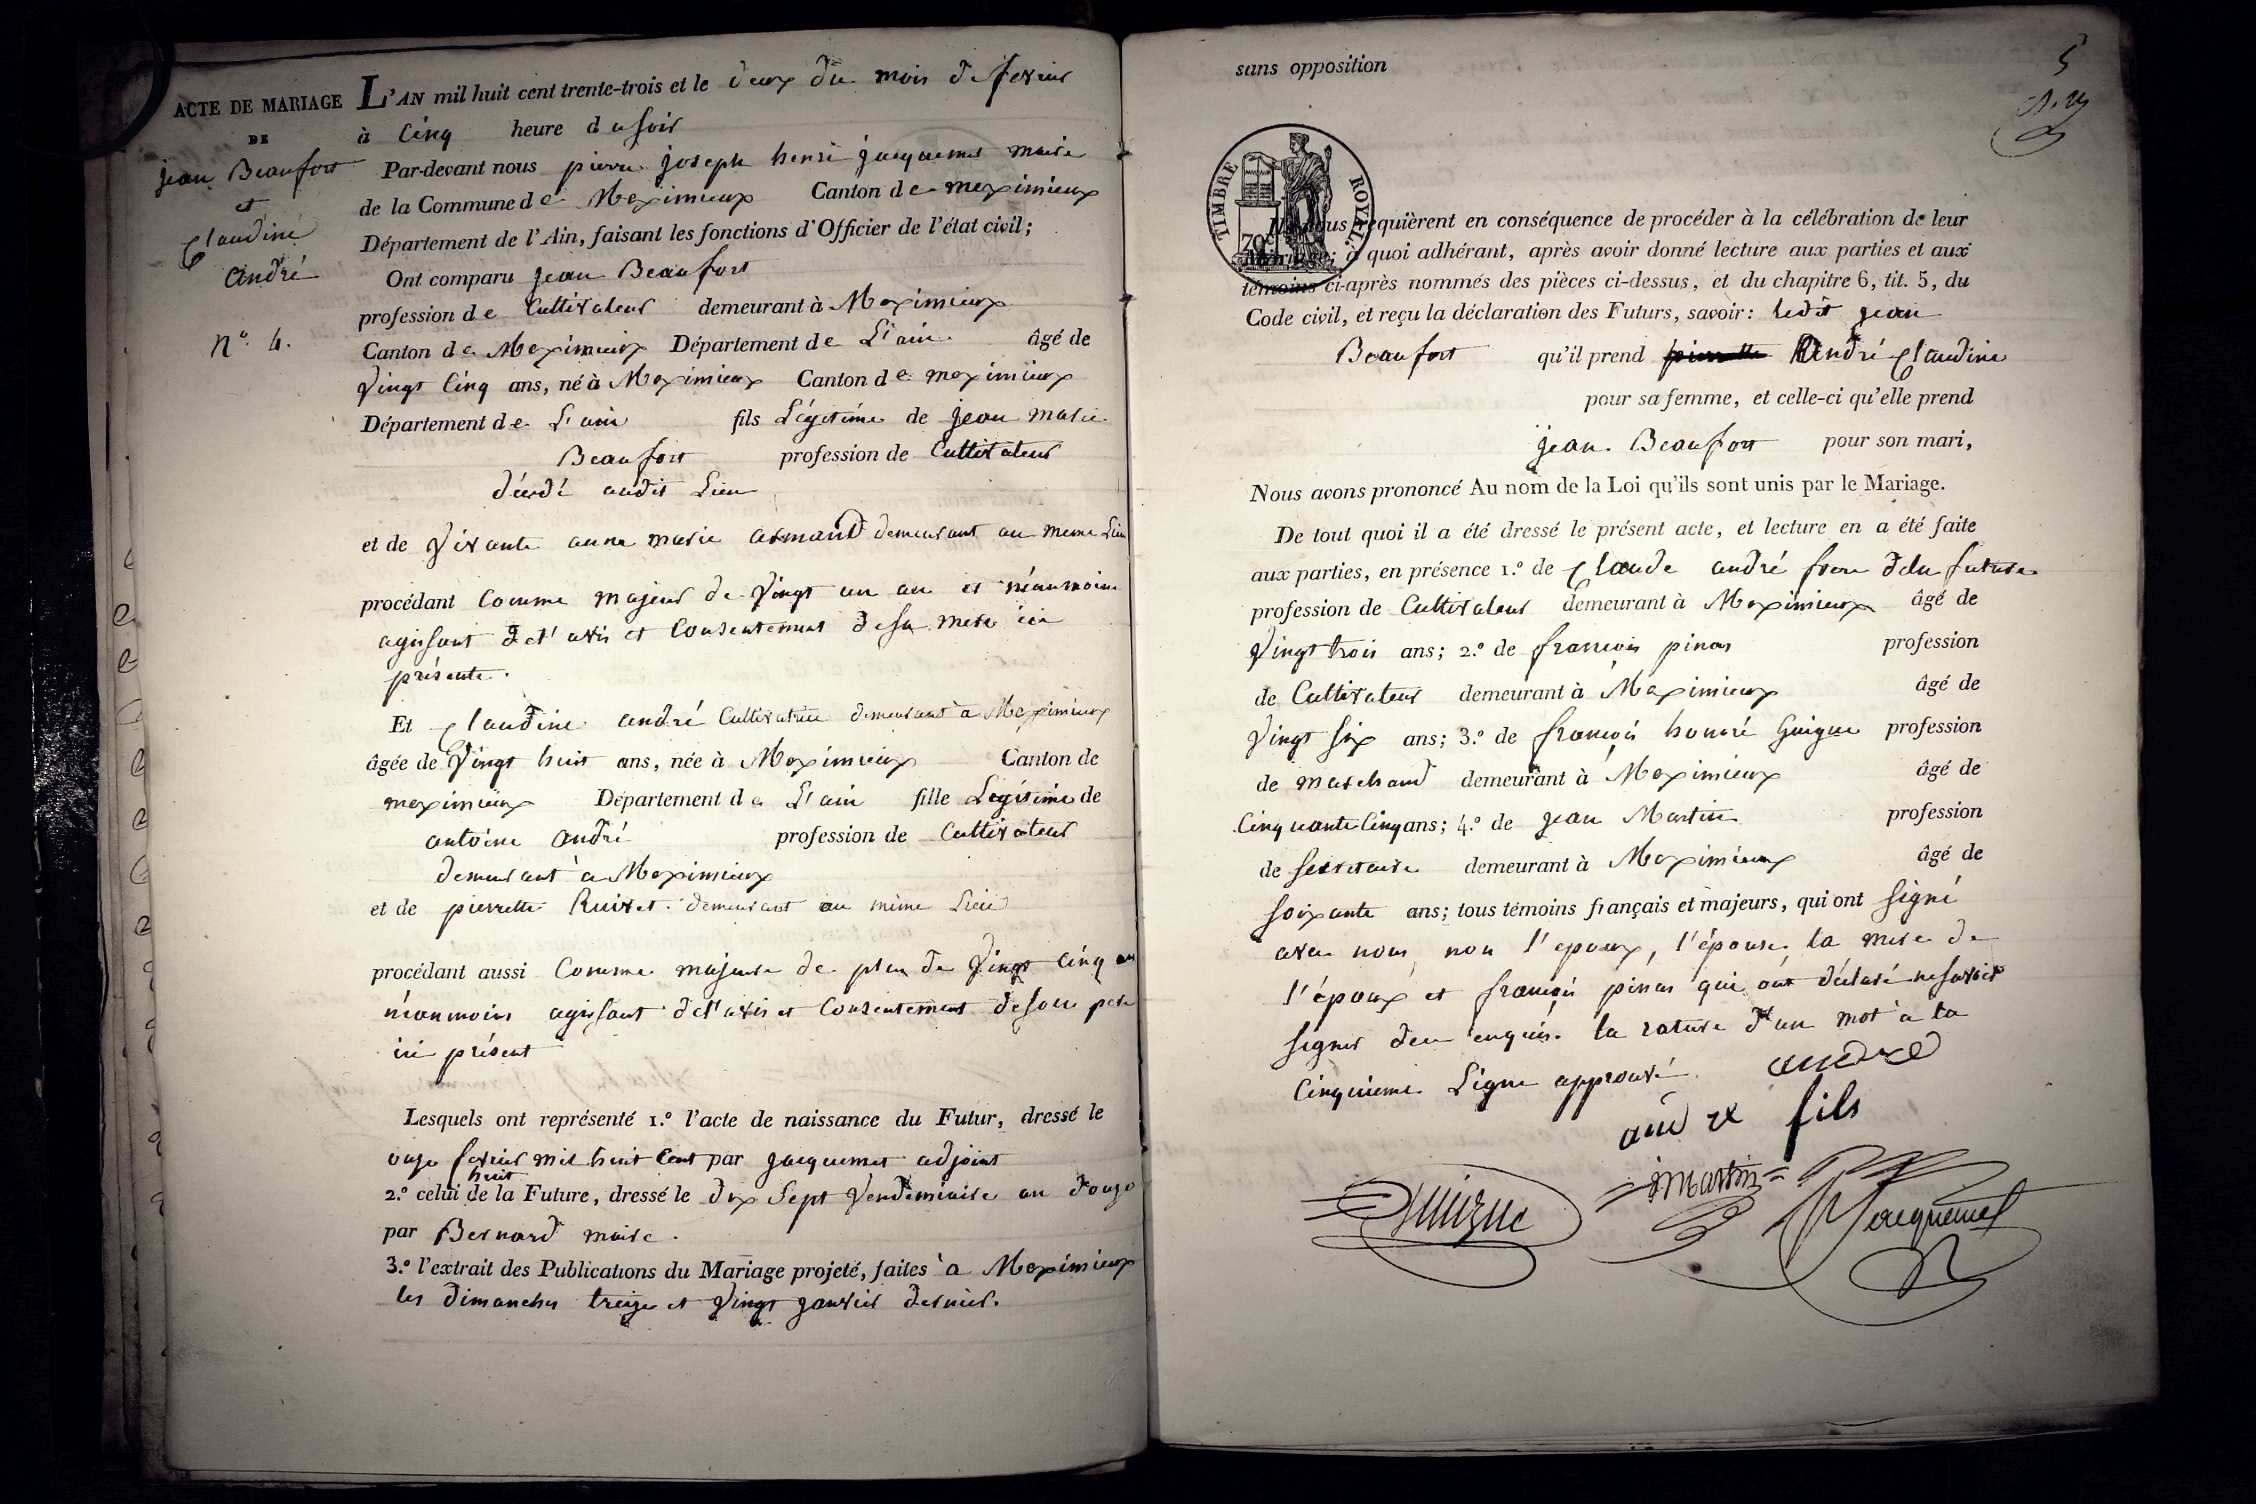 ACTE DE MARIAGE
DE
jean Beaufort
et
Claudine
andré
N.º 4.
L'AN mil huit cent trente-trois et le deux du mois de fevrier
à Cinq heure du soir
Par-devant nous pierre joseph henri jacquemet maire
de la Commune de Meximieux Canton de meximieux
Département de l'Ain, faisant les fonctions d'Officier de l'état civil;
Ont comparu jean Beaufort
profession de Cultivateur demeurant à Meximieux
Canton de Meximieux Département de L'ain. âgé de
Vingt Cinq ans, né à Meximieux Canton de meximieux
Département de L'ain fils Légitime de jean marie
Beaufort profession de Cultivateur
décédé audit Lieu
et de Vivante anne marie armand demeurant au meme Lieu
procédant Comme majeur de Vingt un an et néanmoins
agissant de l'avis et Consentement de sa mere ici
présente.
Et Claudine andré Cultivatrice demeurant à Meximieux
âgée de Vingt huit ans, née à Meximieux Canton de
meximieux Département de L'ain fille Légitime de
antoine andré profession de Cultivateur
demeurant à Meximieux
et de pierrette Ruivet demeurant au même Lieu
procédant aussi Comme majeure de plus de Vingt Cinq an
néanmoins agissant de l'avis et Consentement de son pere
ici présent
Lesquels ont représenté 1.º l'acte de naissance du Futur, dressé le
onze fevrier mil huit Cent huit par jacquemet adjoint
2.º celui de la Future, dressé le dix Sept Vendemiaire an douze
par Bernard maire.
3.º l'extrait des Publications du Mariage projeté, faites à Meximieux
les dimanches treize et Vingt janvier dernier.
5
sans opposition
TIMBRE ROYAL.
70c
Ils nous requièrent en conséquence de procéder à la célébration de leur
Mariage; à quoi adhérant, après avoir donné lecture aux parties et aux
témoins ci-après nommés des pièces ci-dessus, et du chapitre 6, tit. 5, du
Code civil, et reçu la déclaration des Futurs, savoir: ledit jean
Beaufort qu'il prend pierrette André Claudine
pour sa femme, et celle-ci qu'elle prend
jean. Beaufort pour son mari,
Nous avons prononcé Au nom de la Loi qu'ils sont unis par le Mariage.
De tout quoi il a été dressé le présent acte, et lecture en a été faite
aux parties, en présence 1.º de Claude andré frere de la future
profession de Cultivateur demeurant à Meximieux âgé de
Vingt trois ans; 2.º de francois pinas profession
de Cultivateur demeurant à Meximieux âgé de
Vingt Six ans; 3.º de francois honoré Guigue profession
de marchand demeurant à Meximieux âgé de
Cinquante Cinq ans; 4.º de jean Martin profession
de Secretaire demeurant à Meximieux âgé de
Soixante ans; tous témoins français et majeurs, qui ont Signé
avec nous, non l'epoux, l'épouse la mere de
l'époux et francois pinas qui ont déclaré ne savoir
signer de ce enquis. la rature d'un mot à la
Cinquieme Ligne approuvé.
andré
andré fils
Guigue
jMartin
Jacquemet